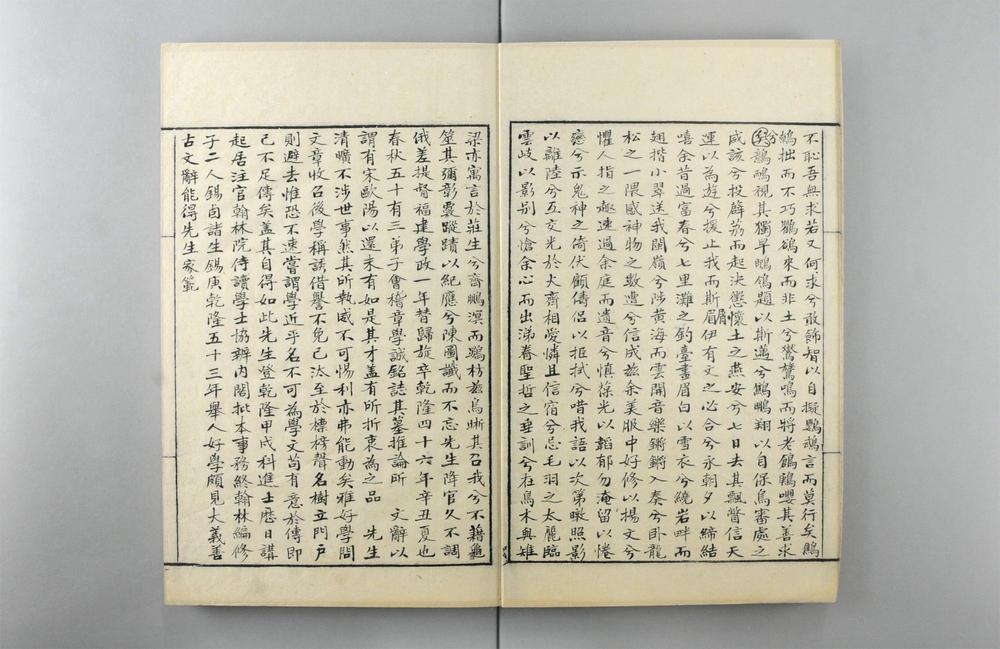 不恥吾無求若又何求兮敢飾智以自擬鸚鵡言而莫行矣鷗
鳩拙而不巧鸜鵒來而非土兮鶖鶖鳴而將老鶴鶉嚶其善求
兮鵲鴝視其獨早鴡鴒題以斯邁兮鷦鵬翔以自保烏審處之
咸該兮投薜荔而起決懲懷土之燕安兮七日去其飄瞥信天
運以為遊兮援止我而斯眉伊有文之必合兮永朝夕以締結
嘻余昔過富春兮七里灘之釣臺畫眉白以雪衣兮繞岩畔而
翅揩小翠送我關嶺兮陟黃海而雲開音樂鏘鏘入秦兮卧龍
松之一隈感神物之數遭兮信成茲余美服中好修以揚文兮
懼人指之趣速過余庭而遺音兮慎葆光以韜郁勿淹留以惓
戀兮示鬼神之倚伏顧儔侶以拒拭兮唶我語以次第暾照影
以離陸兮五文光於大齋相愛憐且信宿兮忘毛羽之太麗臨
雲岐以影別兮愴余心而出涕眷聖哲之垂訓兮在鳥木與雉
梁亦寓言於莊生兮齊鵬溟而鷃枋茲鳥晰其召我兮不藉龜
筮其彌彰靈蹤蹟以紀應兮陳圖讖而不忘先生降官久不調
俄差提督福建學政一年替歸旋卒乾隆四十六年辛丑夏也
春秋五十有三弟子會稽章學誠銘誌其墓推論所 文辭以
謂有宋歐陽以還未有如是其才盖有所折衷為之品 先生
清曠不涉世事然其所執威不可惕利亦弗能動矣雅好學問
文章收召後學稱誘借譽不免已汰至於標榜聲名樹立門戶
則避去惟恐不速嘗謂學近乎名不可為學文苟有意於傳即
己不足傳矣盖其自得如此先生登乾隆甲戌科進士歷日講
起居注官翰林院侍讀學士協辦內閣批本事務終翰林編修
子二人錫卣諸生錫庚乾隆五十三年舉人好學頗見大義善
古文辭能得先生家範